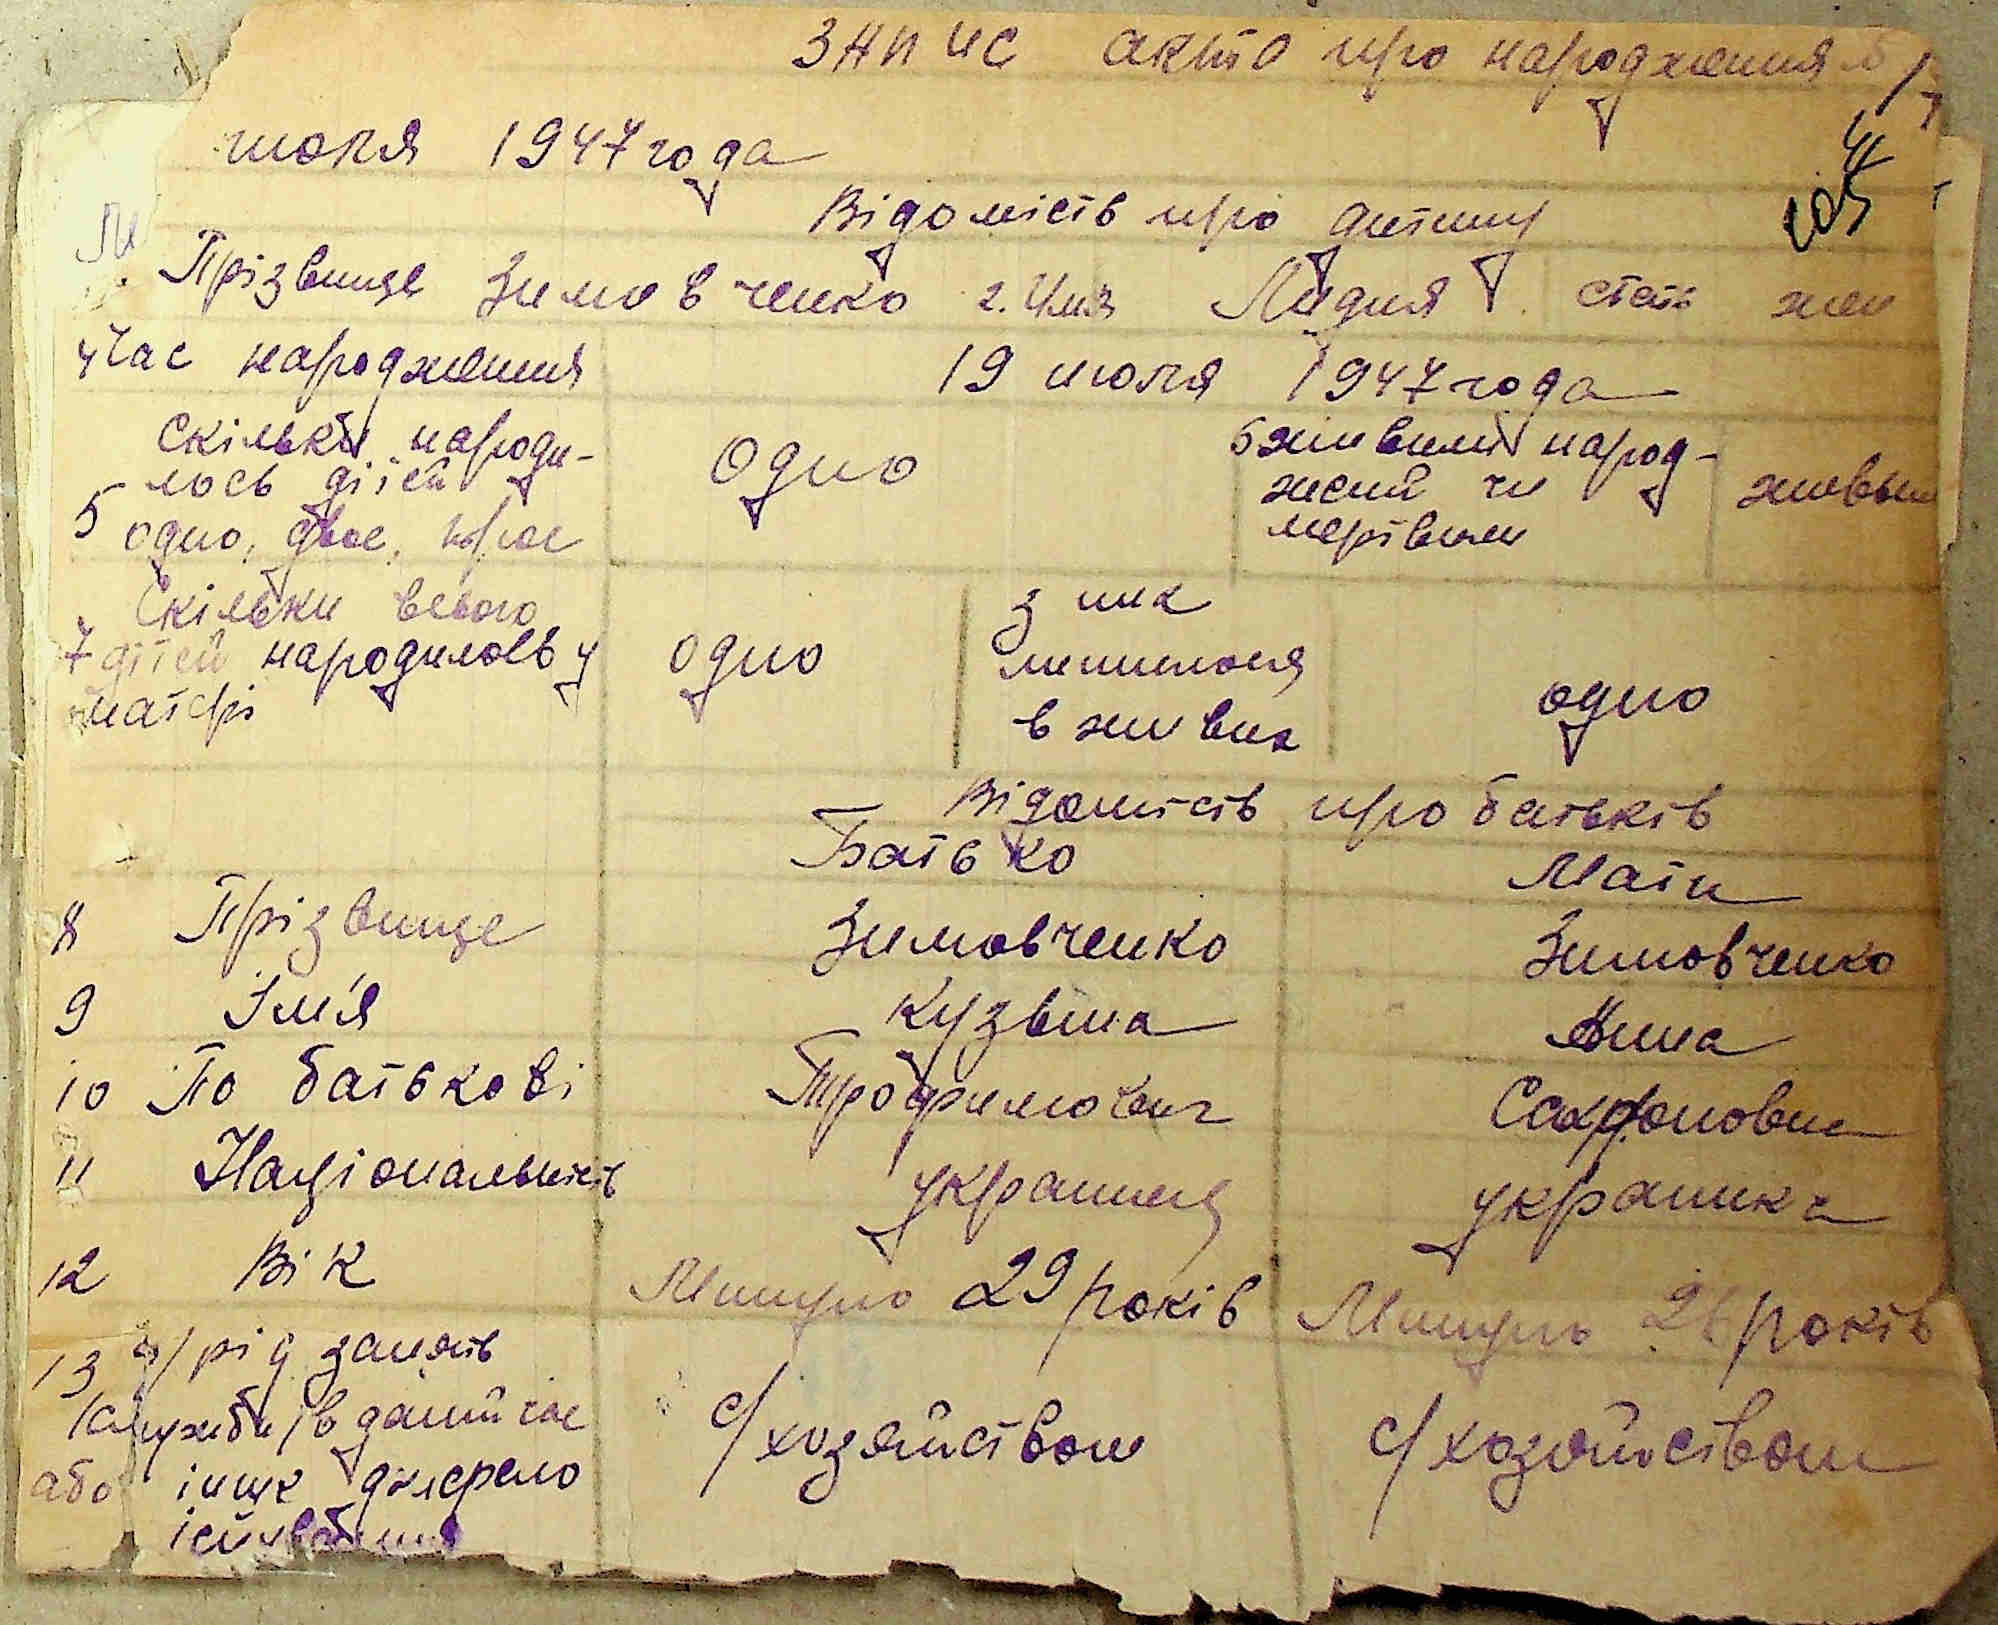 Запис акта про народження №
июля 1947 года
105
Відомість про дитину
Прізвище Зимовченко 2. Імя Лидия стать жен
4 Час народження 19 июля 1947 года
Скільки народи-
лось дітей
5 одно, двое, троє
одно
6 живими народ-
жений чи
мертвим
живым
Скільки всього
7 дітей народилось у
матері
одно
з них
лишилося
в живих
одно
Відомість про батьків
Батько Мати
8 Прізвище Зимовченко Зимовченко
9 Ім'я Кузьма Анна
10 По батькові Трофимович
11 Національність украинец украинка
12 Вік Минуло 29 років Минуло 26 років
13 а/ рід занять
/служби/ в даний час
або інше джерело
існування
с/хозяйством с/хозяйством